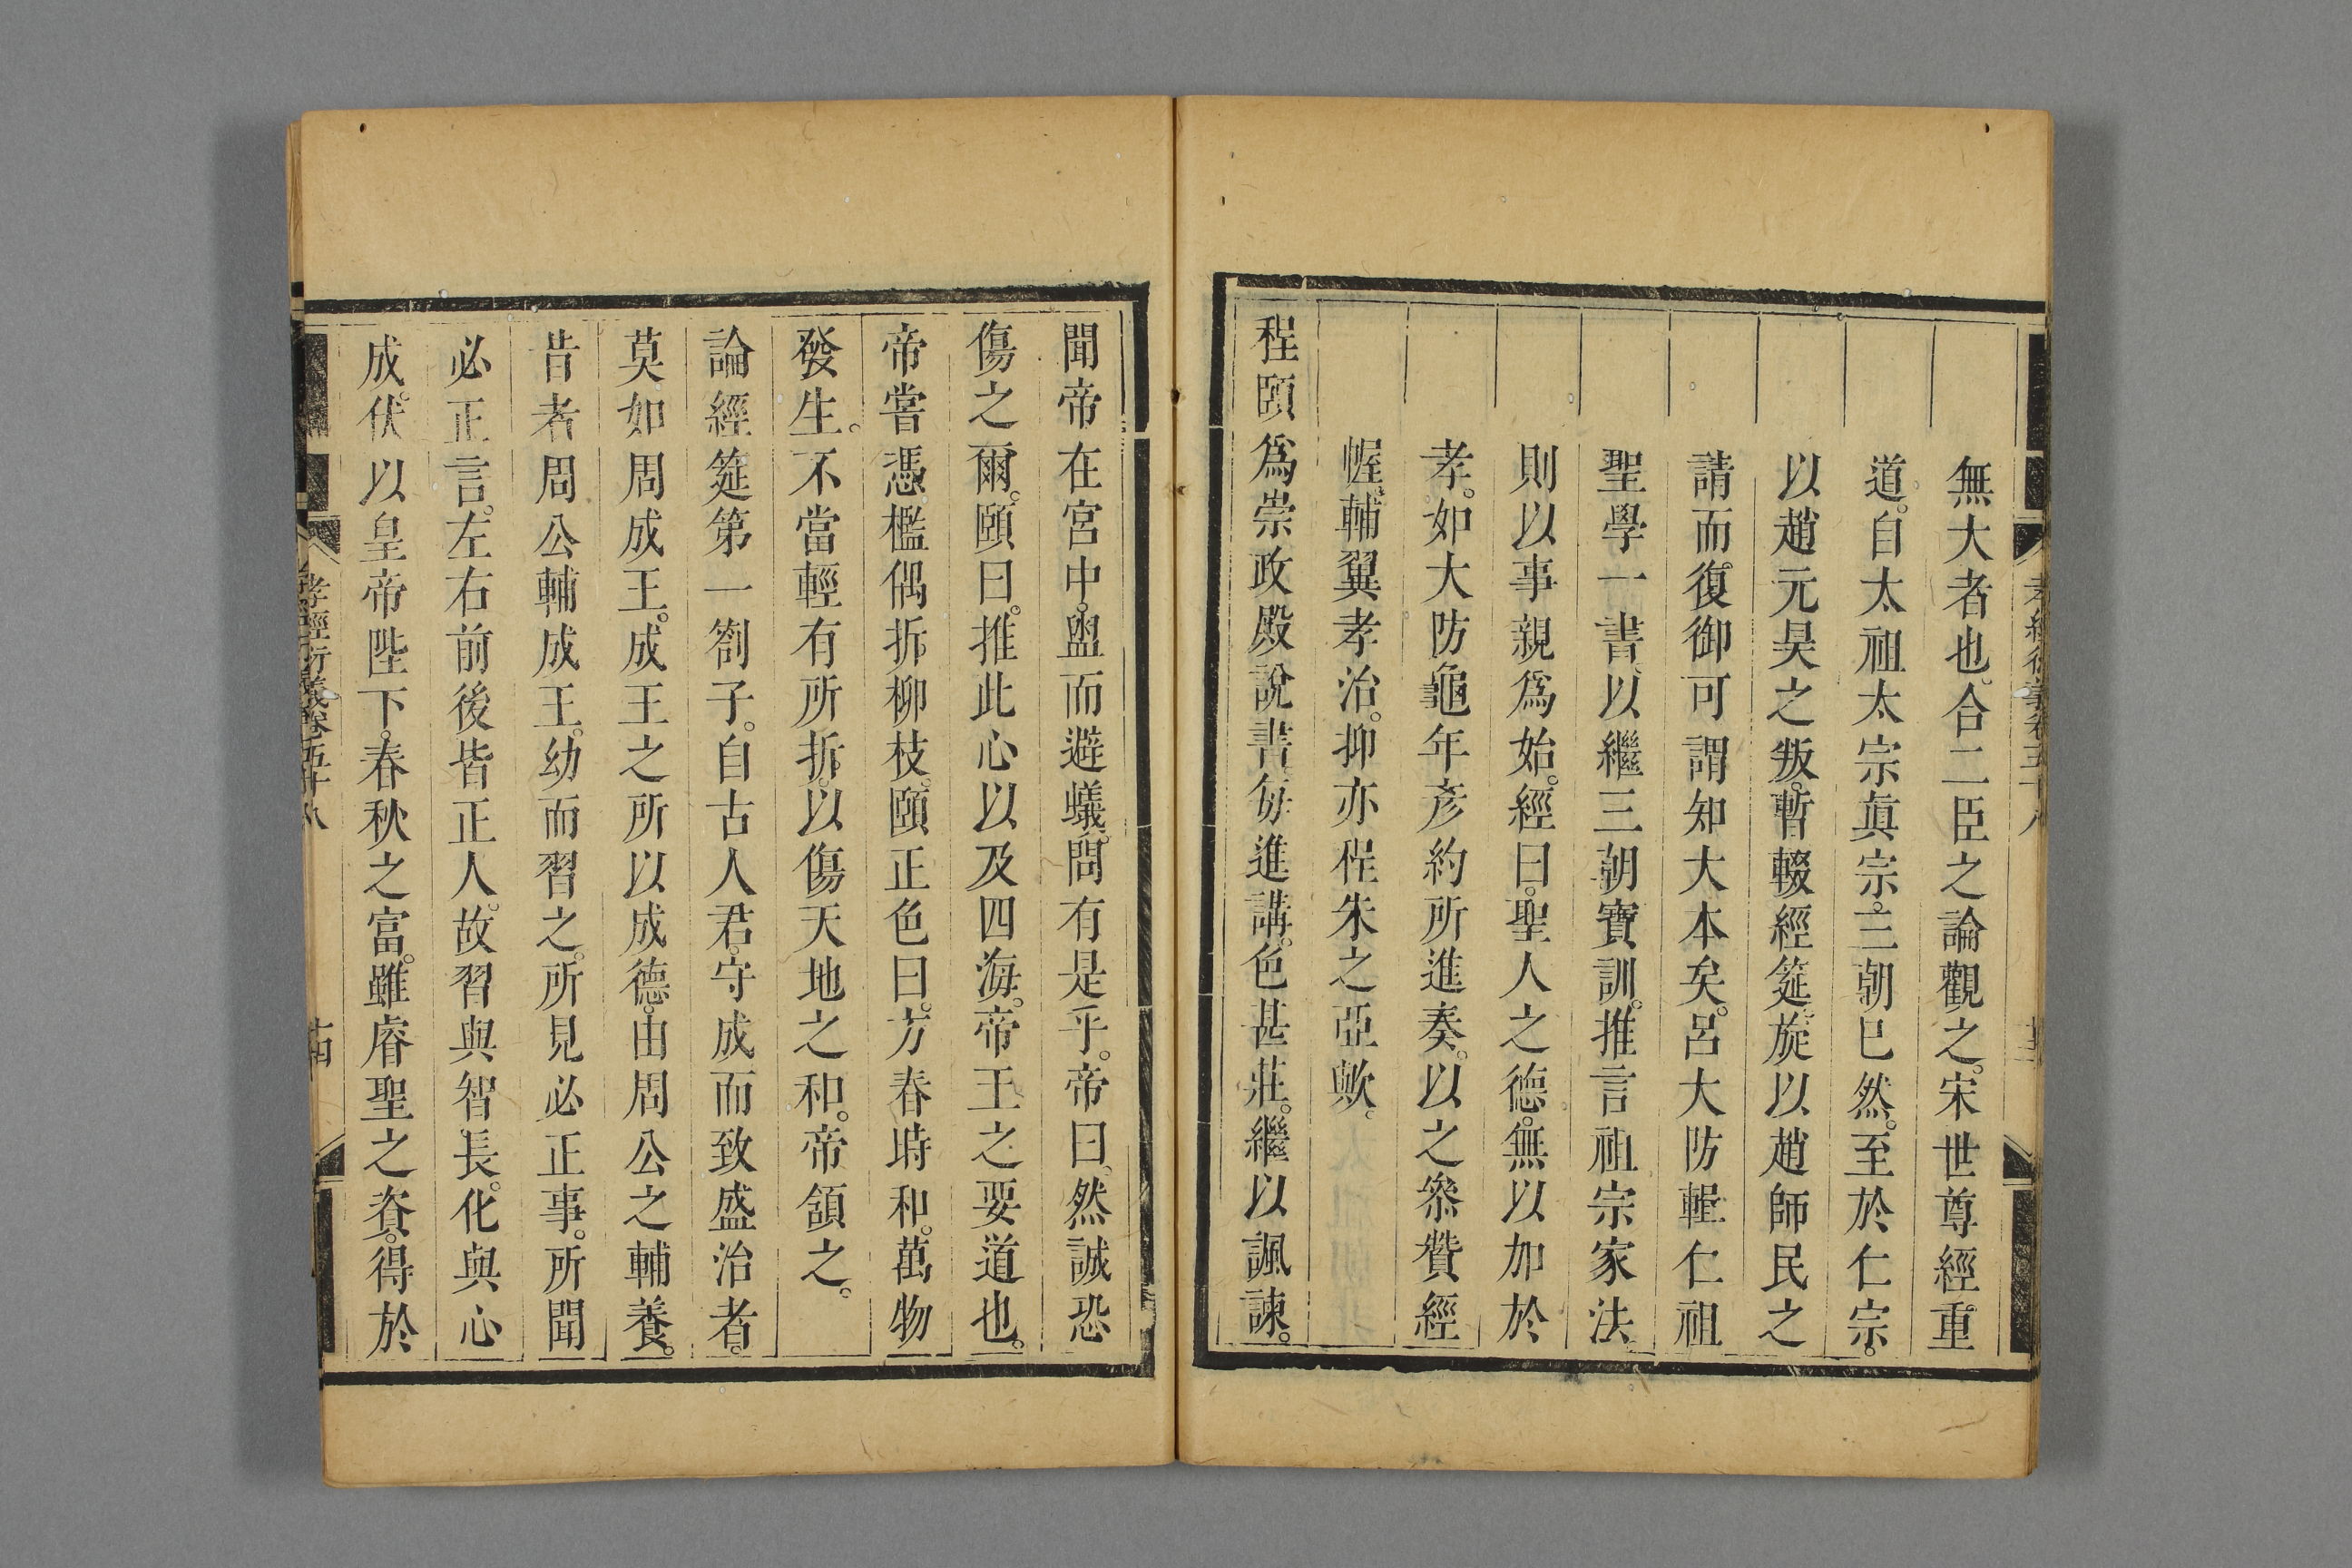 無大者也。合二臣之論觀之。宋世尊經重
道。自太祖太宗眞宗。三朝已然。至於仁宗。
以趙元昊之叛。暫輟經筵。旋以趙師民之
請而復御。可謂知大本矣。呂大防輯仁祖
聖學一書。以繼三朝寶訓。推言祖宗家法。
則以事親爲始。經曰。聖人之德。無以加於
孝。如大防龜年彥約所進奏。以之叅贊經
幄。輔翼孝治。抑亦程朱之亞歟。
程頤爲崇政殿說書。每進講。色甚莊。繼以諷諫。
聞帝在宮中。盥而避蟻。問有是乎。帝曰。然誠恐
傷之爾。頤曰。推此心以及四海。帝王之要道也。
帝嘗憑檻偶拆柳枝。頤正色曰。方春時和。萬物
發生。不當輕有所折。以傷天地之和。帝頷之。
論經筵第一劄子。自古人君。守成而致盛治者。
莫如周成王。成王之所以成德。由周公之輔養。
昔者周公輔成王。幼而習之。所見必正事。所聞
必正言。左右前後皆正人。故習與智長。化與心
成。伏以皇帝陛下。春秋之富。雖睿聖之資。得於
孝經衍義卷五十八
十四